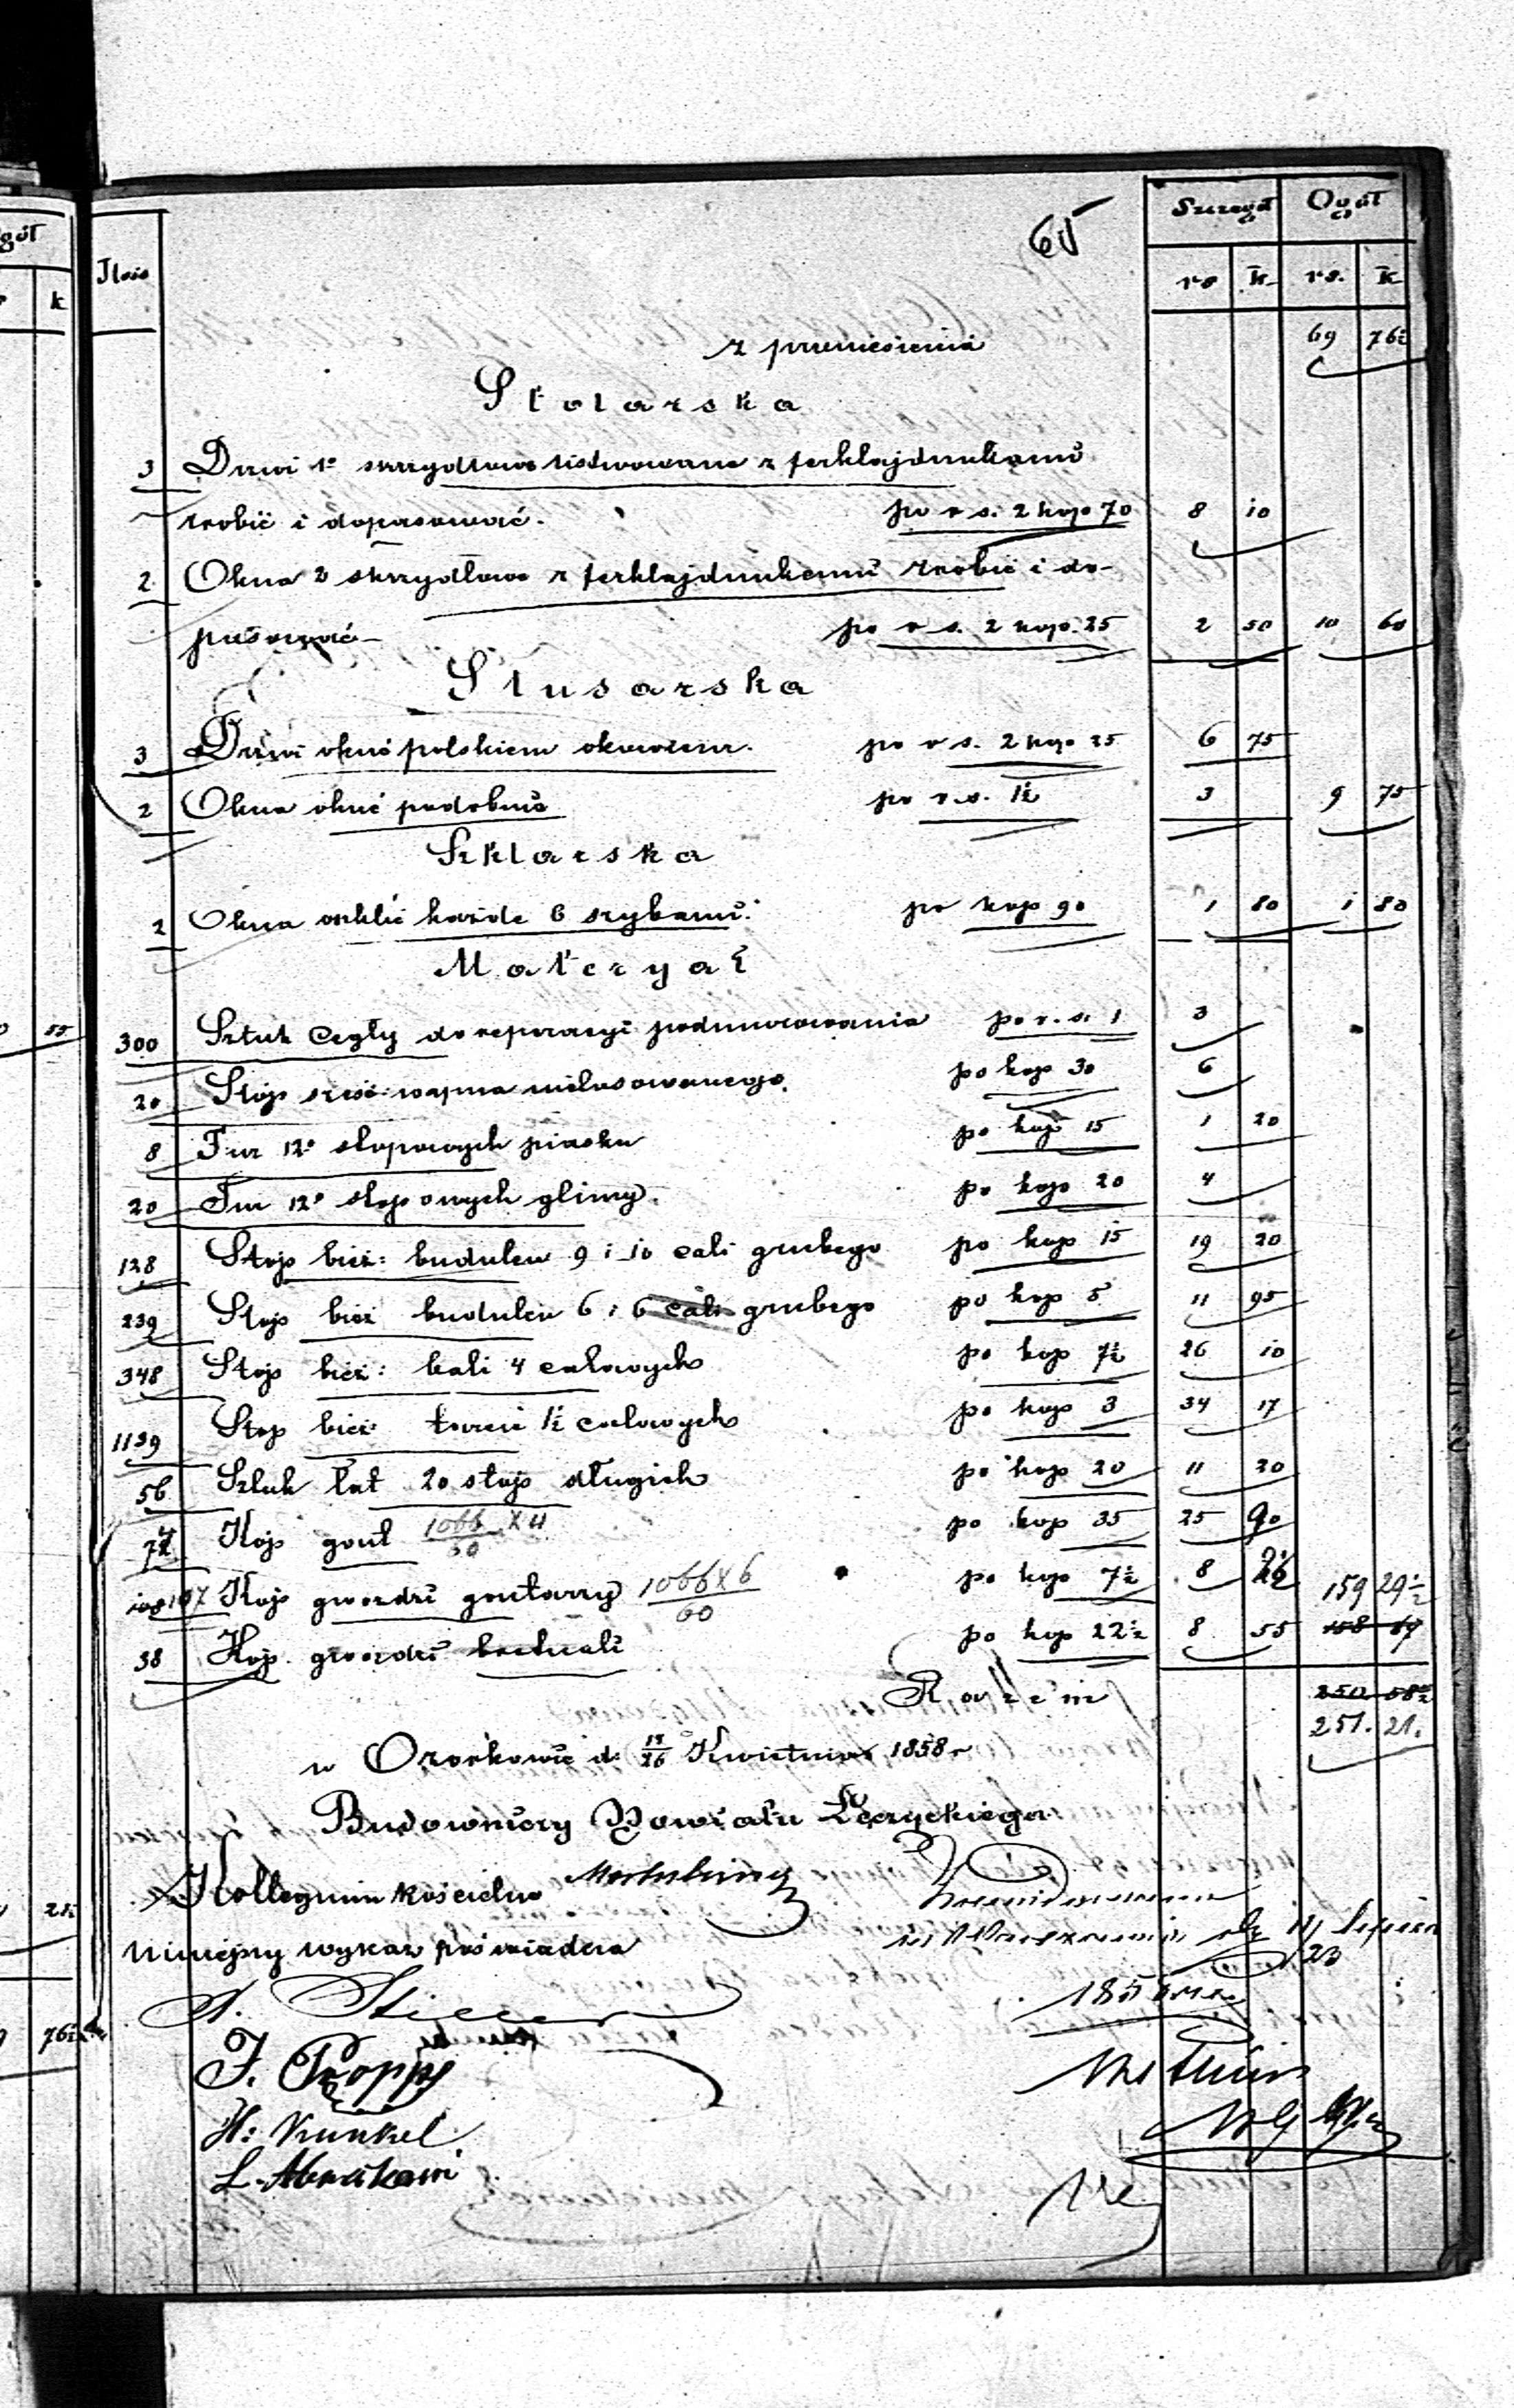 gół
k
Ilość
65
Szczegół Ogół
rs k rs. k
z przeniesienia 69 76½
Stolarska
3 Drzwi 1o skrzydłowe listwowane z ferklajdunkami
zrobić i dopasować. po rs. 2 kop 70 8 10
2 Okna 2 skrzydłowe z ferklajdunkami zrobić i do-
pasować po rs. 2 kop. 25 2 50 10 60
Slusarska
3 Drzwi okuć polskiem okuciem. po rs. 2 kop 25 6 75
2 Okna okuć podobnie po r.s. 1½ 3 9 75
Szklarska
2 Okna oszklić każde 6 szybami. po kop 90 1 80 1 80
Materyał
300 Sztuk Cegły do reperacyi podmurowania po r. s. 1 3
20 Stop sześć: wapna nielasowanego. po kop 30 6
8 Fur 12o stopowych piasku po kop 15 1 20
20 Fur 12o stopowych gliny. po kop 20 4
128 Stop bież: budulcu 9 i 10 cali grubego po kop 15 19 20
239 Stop bież budulcu 6 i 6 cali grubego po kop 5 11 95
348 Stop bież: bali 4 calowych po kop 7½ 26 10
1139 Stop bież: tarcic 1½ calowych po kop 3 34 17
56 Sztuk łat 20 stop długich po kop 20 11 20
74 Kop gont 1066 X 4 / 60 po kop 35 25 90
108 107 Kop gwozdzi gontarzy 1066 X 6 / 60 po kop 7½ 8 159 29½
38 Kop. gwozdzi bretnali po kop 22½ 8 55 158 87
Razem 250 58½
251. 21.
w Ozorkowie d: 14/26 Kwietnia 1858 r
Budowniczy Powiatu Łęczyckiego
Kollegium kościelne
Niniejszy wykaz poświadcza
23
J. Propp
H: Kunkel
76½